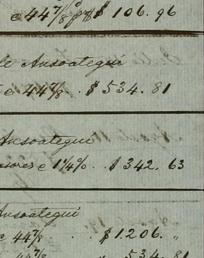 c 44 7/8 p% $ 106.96
de Ansoategui
c 44 7/8 . $ 534.81
Ansoategui
c 1 1/4 % . $ 342.63
Ansoategui
c 44 7/8 . $ 1.206. "
44 7/8 534.81